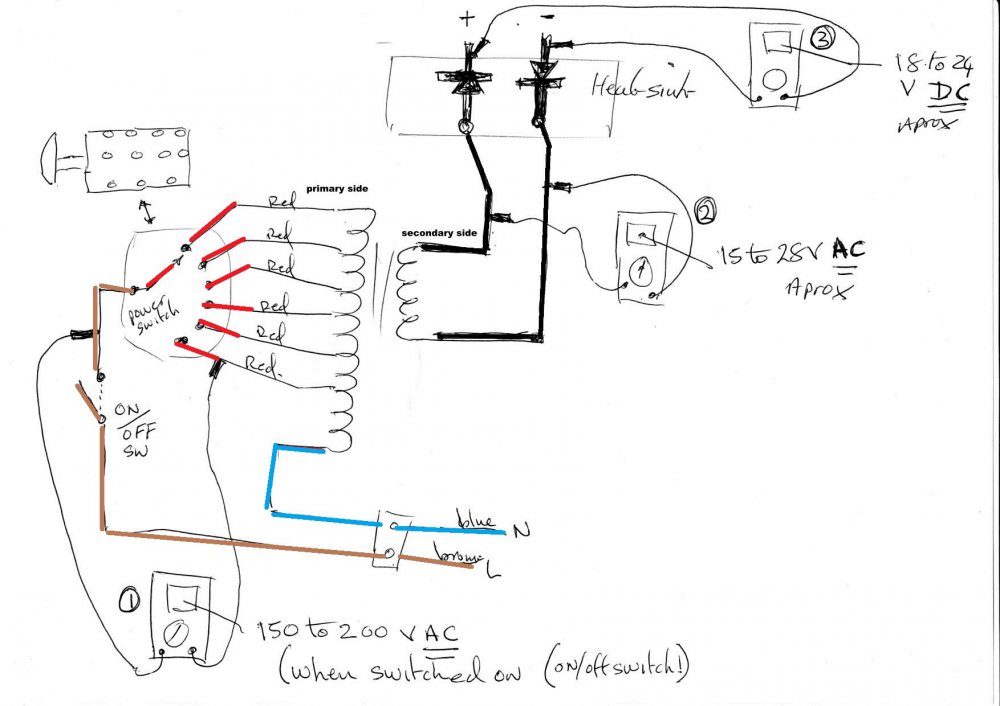 + -
③
18 to 24
V DC
Aprox
Heat sink
Red
primary side
Red
Red
Red
Red
Red
secondary side
②
15 to 28V AC
Aprox
power
switch
ON/
OFF
SW
blue N
brown L
①
150 to 200 V AC
(when switched on (ON/OFF switch!)